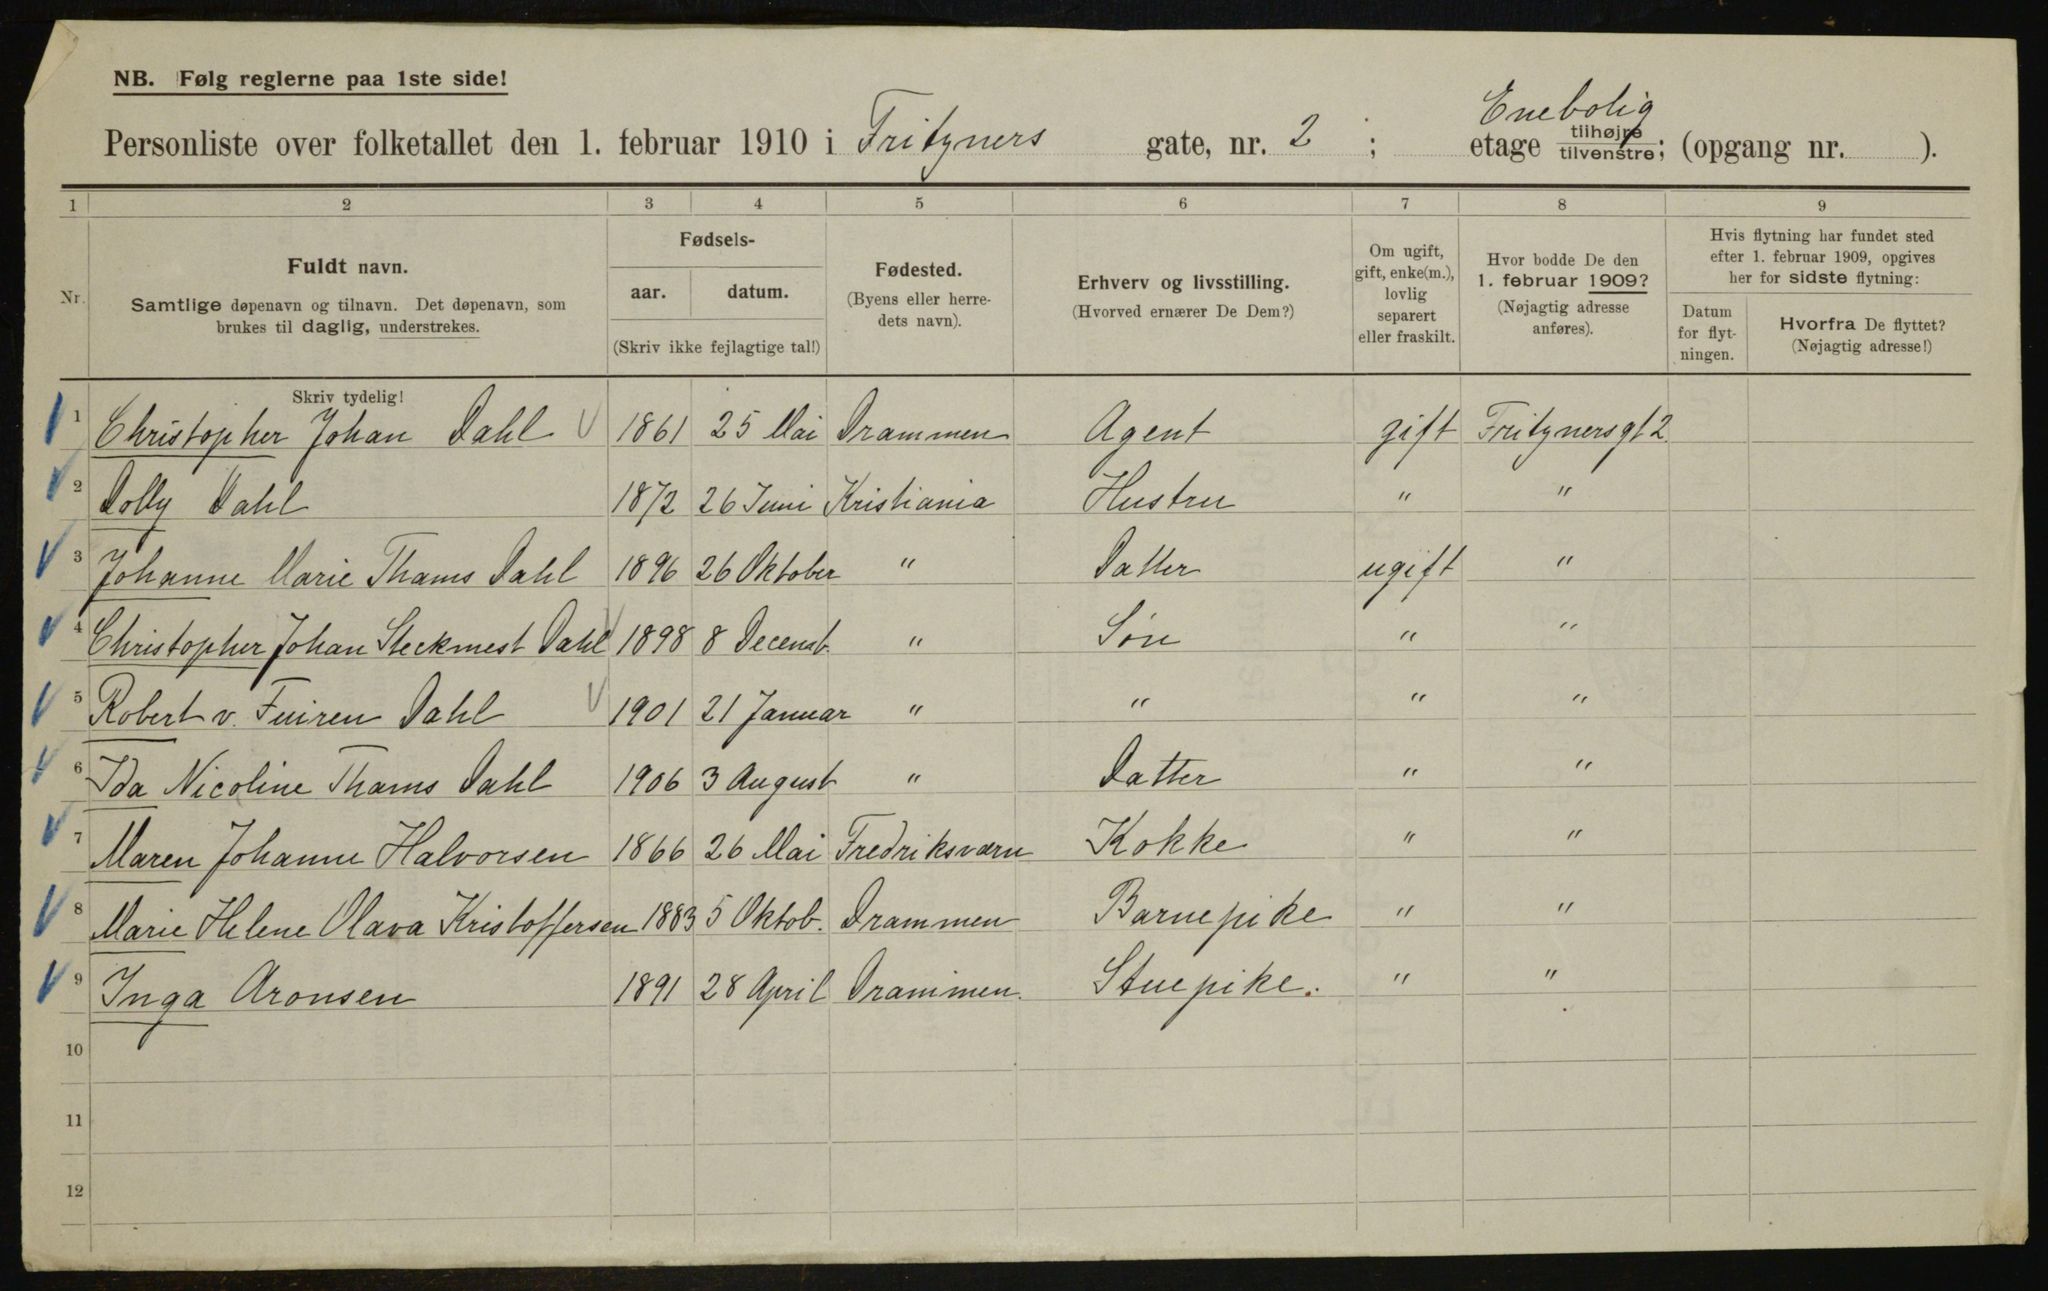 NB. Følg reglerne paa 1ste side!
Enebolig
Personliste over folketallet den 1. februar 1910 i Fritzners gate, nr. 2 ; etage tilhøjre tilvenstre; (opgang nr. ).
1 2 3 4 5 6 7 8 9
Nr.
Fuldt navn.
Samtlige døpenavn og tilnavn. Det døpenavn, som
brukes til daglig, understrekes.
Skriv tydelig!
Fødsels-
aar. datum.
(Skriv ikke fejlagtige tal!)
Fødested.
(Byens eller herre-
dets navn).
Erhverv og livsstilling.
(Hvorved ernærer De Dem?)
Om ugift,
gift, enke(m.),
lovlig
separert
eller fraskilt.
Hvor bodde De den
1. februar 1909?
(Nøjagtig adresse
anføres).
Hvis flytning har fundet sted
efter 1. februar 1909, opgives
her for sidste flytning:
Datum
for flyt-
ningen.
Hvorfra De flyttet?
(Nøjagtig adresse!)
1 Christopher Johan Dahl 1861 25 Mai Drammen Agent gift Fritznersgt 2
2 Dolly Dahl 1872 26 Juni Kristiania Hustru " "
3 Johanne Marie Thams Dahl 1896 26 Oktober " Datter ugift "
4 Christopher Johan Steckmest Dahl 1898 8 Decemb. " Søn " "
5 Robert v. Fuiren Dahl 1901 21 Januar " " " "
6 Ida Nicoline Thams Dahl 1906 3 August " Datter " "
7 Maren Johanne Halvorsen 1866 26 Mai Fredriksværn Kokke " "
8 Marie Helene Olava Kristoffersen 1883 5 Oktob. Drammen Barnepike " "
9 Inga Aronsen 1891 28 April Drammen. Stuepike. " "
10
11
12